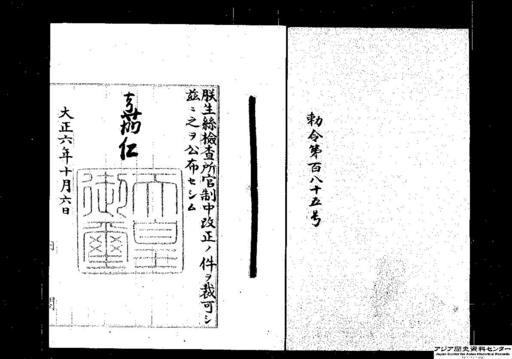 勅令第百八十五号
朕生絲檢査所官制中改正ノ件ヲ裁可シ
茲ニ之ヲ公布セシム
嘉仁
天皇御璽
大正六年十月六日
内閣
アジア歴史資料センター
Japan Center for Asian Historical Records